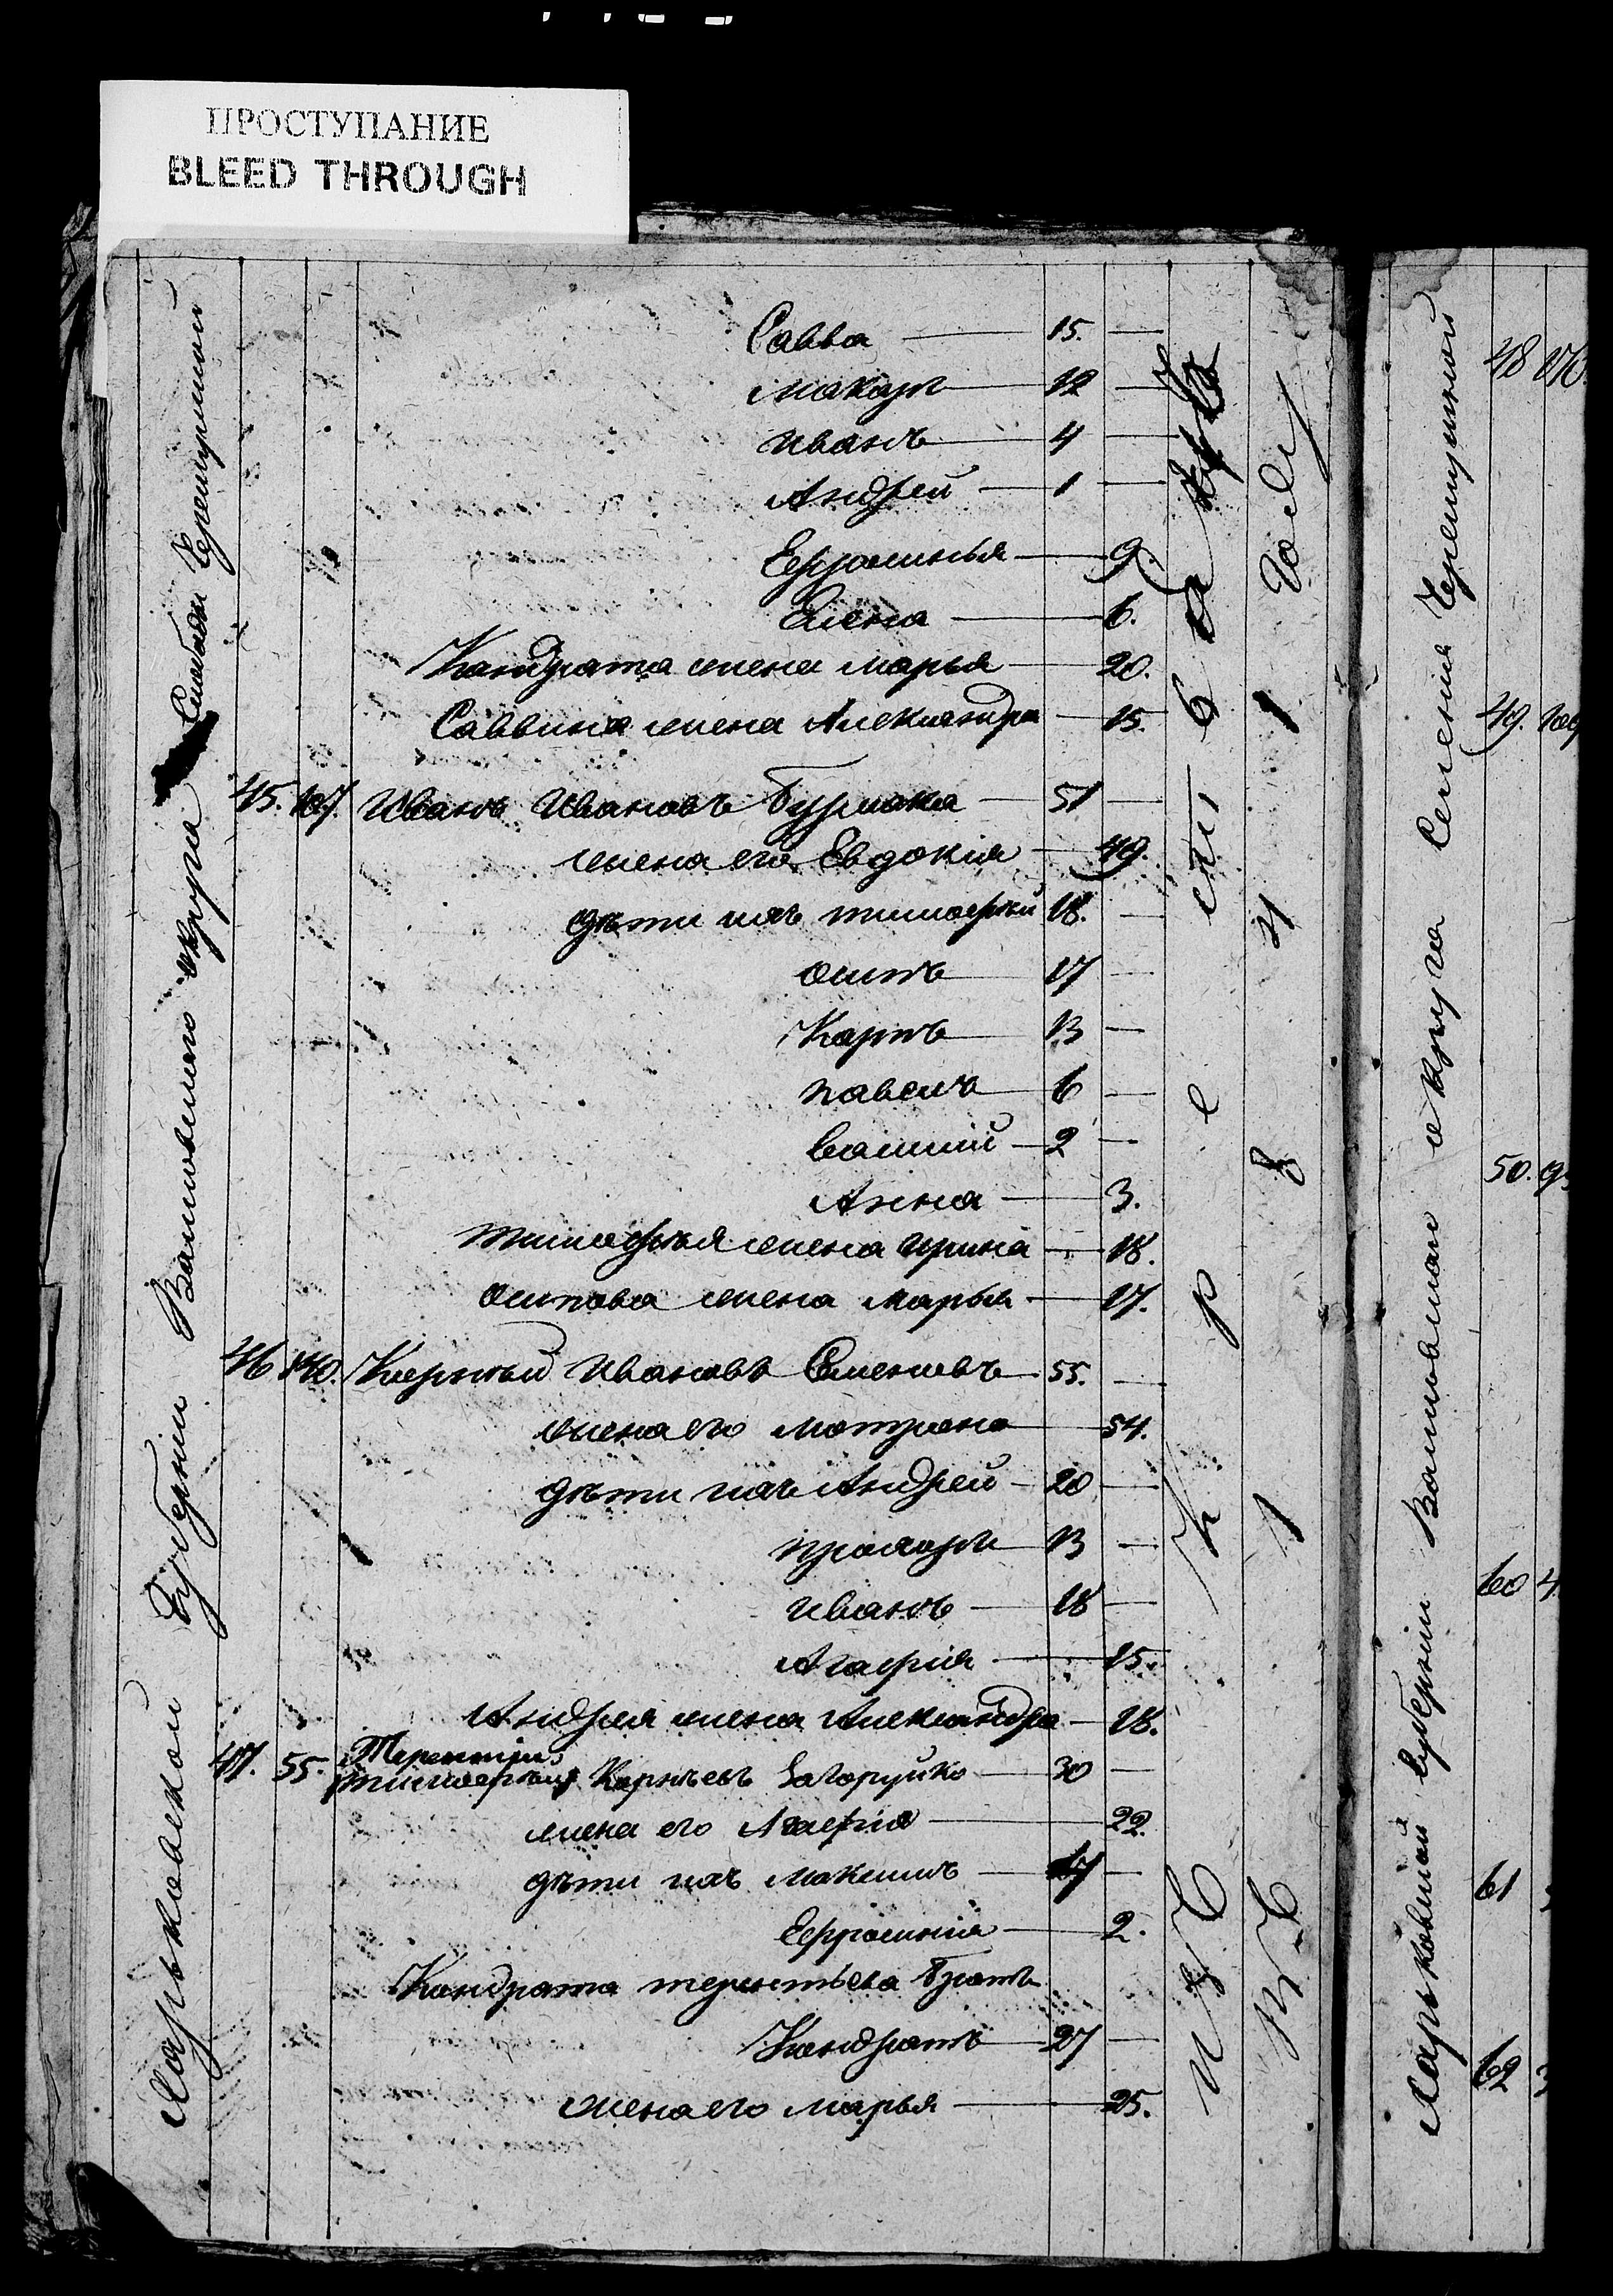 ПРОСТУПАНИЕ
BLEED THROUGH
Харьковской Губерніи Валковскаго округа Слободы
Савва 15. —
Макаръ 12 —
Иванъ 4 —
Андрей — 1 —
Ефросинья — 9
Елена — 6.
Кондрата жена Марья — 20.
Саввина жена Александра — 15.
45. 107. Иванъ Ивановъ Бурлака — 51 —
жена его Евдокія — 49.
Дѣти ихъ Тимофѣй 18. —
Осипъ 17 —
Карпъ 13 —
Павелъ 6 —
Василій — 2 —
Анна — 3.
Тимофѣя жена Ирина — 18.
Осипова жена Марья — 17.
46 140. Корнѣй Ивановъ 55. —
жена его Мотрона 54.
Дѣти ихъ Андрей — 20 —
Прохоръ 13 —
Иванъ — 18 —
Агафія — 15.
Андрея жена Александра — 18.
47. 55. Терентій
Тимофѣй Корнѣевъ Загоруйко — 30 —
жена его Агафія — 22.
дѣти ихъ Максимъ — 7 —
Ефросинія — 2.
Кондрата Терентьева братъ
Кондратъ 27 —
жена его Марья — 25.
1 8 4 1 Году
Харьковской Губерніи округа Селенія
48
49.
50.
60 4.
61
62